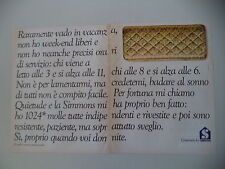 Raramente vado in vacanza,
non ho week-end liberi e
non ho neanche precisi orari
di servizio: chi viene a
letto alle 3 e si alza alle 11, chi alle 8 e si alza alle 6.
Non è per lamentarmi, ma di credetemi, badare al sonno
tutti non è compito facile. Per fortuna mi chiamo
Quietude e la Simmons mi ha proprio ben fatto:
ho 1024* molle tutte indipendenti e rivestite e poi sono
resistente, paziente, ma soprattutto sveglio.
Sì, proprio quando voi dormite.